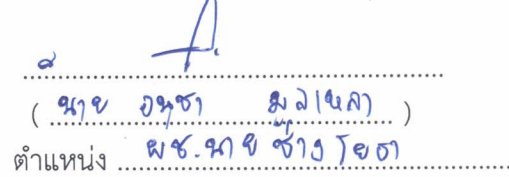 ( นาย อนุชา มลเหลา )
ตำแหน่ง ผช.นายช่างโยธา